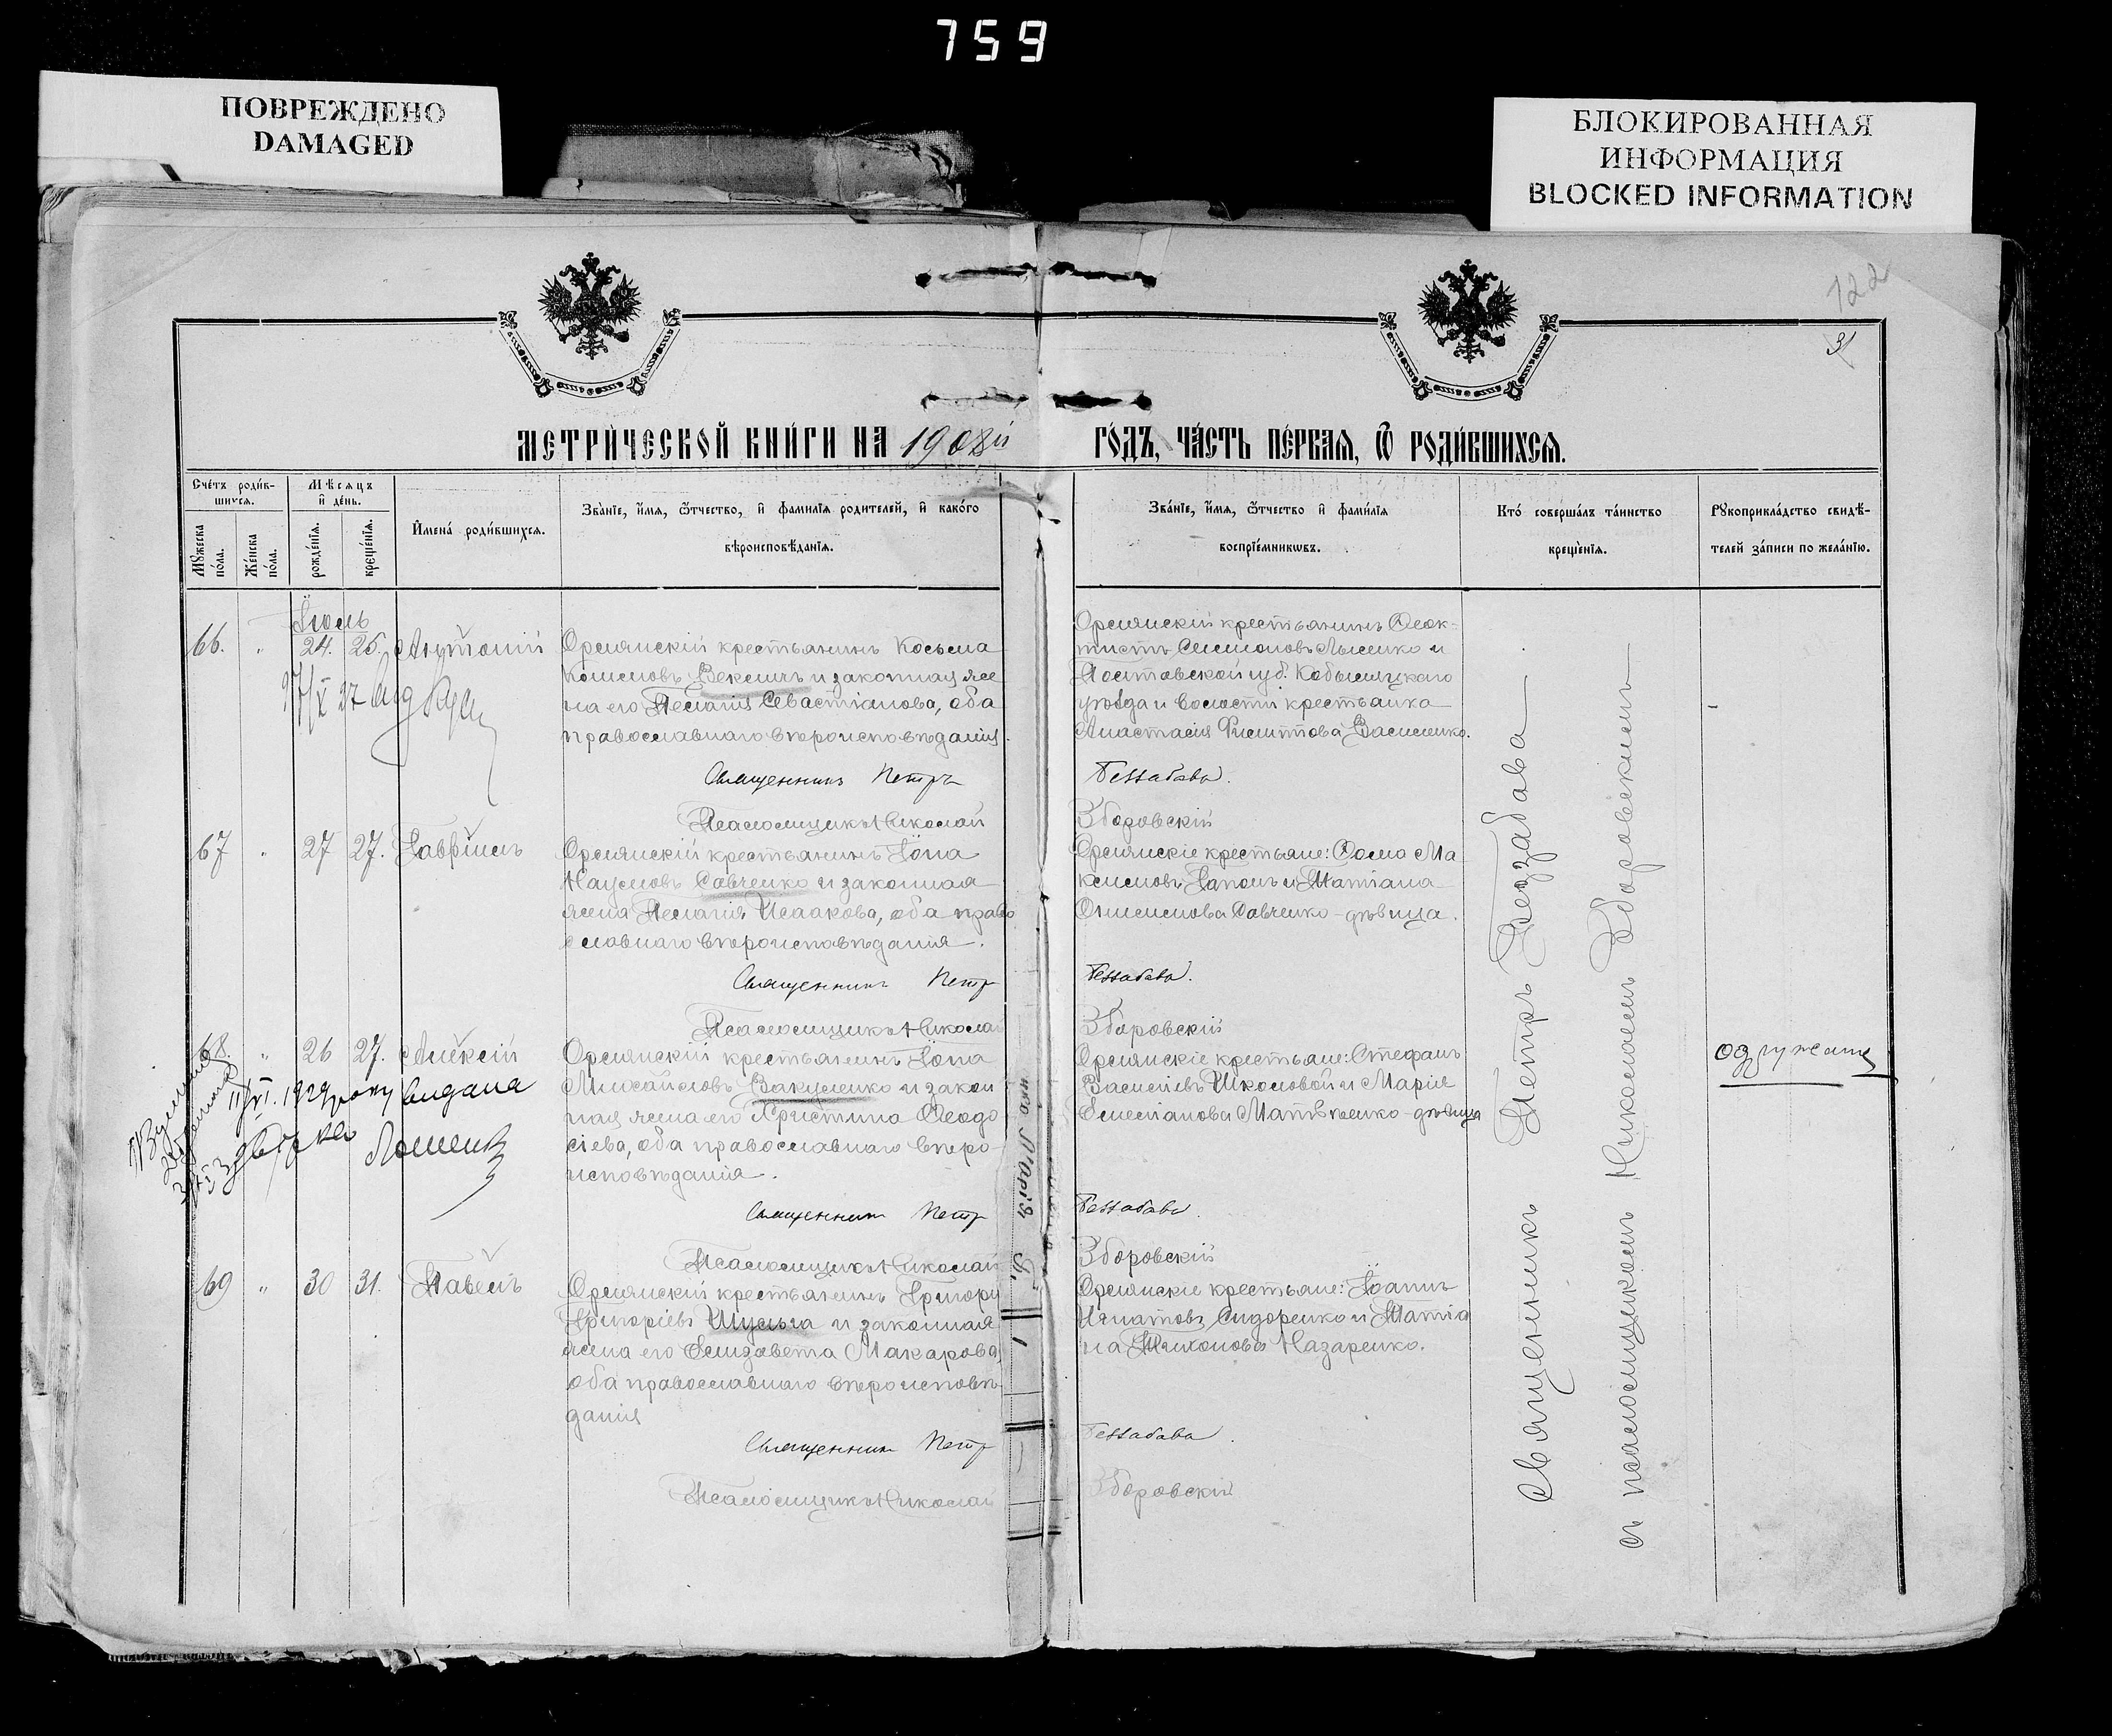 759
ПОВРЕЖДЕНО
DAMAGED
БЛОКИРОВАННАЯ
ИНФОРМАЦИЯ
BLOCKED INFORMATION
122
31
МЕТРИ́ЧЕСКОЙ КНИ́ГИ НА 1908й
ГО́ДЪ, ЧА́СТЬ ПЕ́РВАѦ, Ѿ РОДИ́ВШИХСѦ.
Сче́тъ роди́в-
шихсѧ.
Мꙋ́жеска по́ла.
Же́нска по́ла.
Мѣ́сѧцъ
и҆ де́нь.
рожде́нїѧ.
креще́нїѧ.
И҆мена̀ роди́вшихсѧ.
Зва́нїе, и҆́мѧ, ѻ҆́тчество, и҆ фами́лїѧ роди́телей, и҆ како́го
вѣроисповѣ́данїѧ.
Зва́нїе, и҆́мѧ, ѻ҆́тчество и҆ фами́лїѧ
воспрїе́мникѡвъ.
Кто̀ соверша́лъ та́инство
креще́нїѧ.
Рꙋкоприкла́дство свидѣ́-
телей за́писи по жела́нїю.
Іюль
66. " 24. 25. Антоній
Орлянскій крестьянинъ Косьма
и законная же
на его Пелагія Севастіанова, оба
православнаго вѣроисповѣданія.
Священникъ Петръ
Псаломщикъ Николай
Орлянскій крестьянинъ Ѳеок-
тистъ Симоновъ Лысенко и
Полтавской губ. Кобыляцкаго
уѣзда и волости крестьянка
Анастасія Филиппова Василенко.
Беззабава.
Зборовскій
67 " 27 27. Гавріилъ
Орлянскій крестьянинъ Іона
Наумовъ Савченко и законная
жена Пелагія Исаакова, оба право
славнаго вѣроисповѣданія.
Священникъ Петр
Псаломщикъ Никола
Орлянскіе крестьяне: Ѳома Ма
ксимовъ Гапонъ и Татіана
Онисимова Савченко - дѣвица.
Беззабава.
Зборовскій
68. " 26 27. Алексій
1929 року видана
Орлянскій крестьянинъ Іона
Михайловъ Вакуленко и закон
ная жена его Христина Ѳеодо
сіева, оба православнаго вѣро-
исповѣданія.
Священник Петр
Псаломщикъ Николай
Орлянскіе крестьяне: Стефанъ
Василіевъ Школовой и Марія
Емеліанова Матвѣенко - дѣвица
Беззабава.
Зборовскій
69 " 30 31. Павелъ
Орлянскій крестьянинъ Григорій
Григоріевъ Шульга и законная
жена его Елизавета Макарова,
оба православнаго вѣроисповѣ-
данія
Священник Петр
Псаломщикъ Николай
Орлянскіе крестьяне: Іоаннъ
Игнатовъ Сидоренко и Татіа
на Тихонова Назаренко.
Беззабава.
Зборовскій
Священникъ Петръ Беззабава
съ псаломщикомъ Николаемъ Зборовскимъ